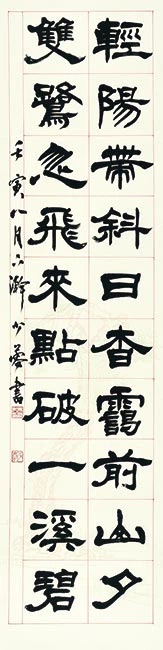 輕陽帶斜日杳靄前山夕
雙鷺忽飛來點破一溪碧
壬寅八月下澣書